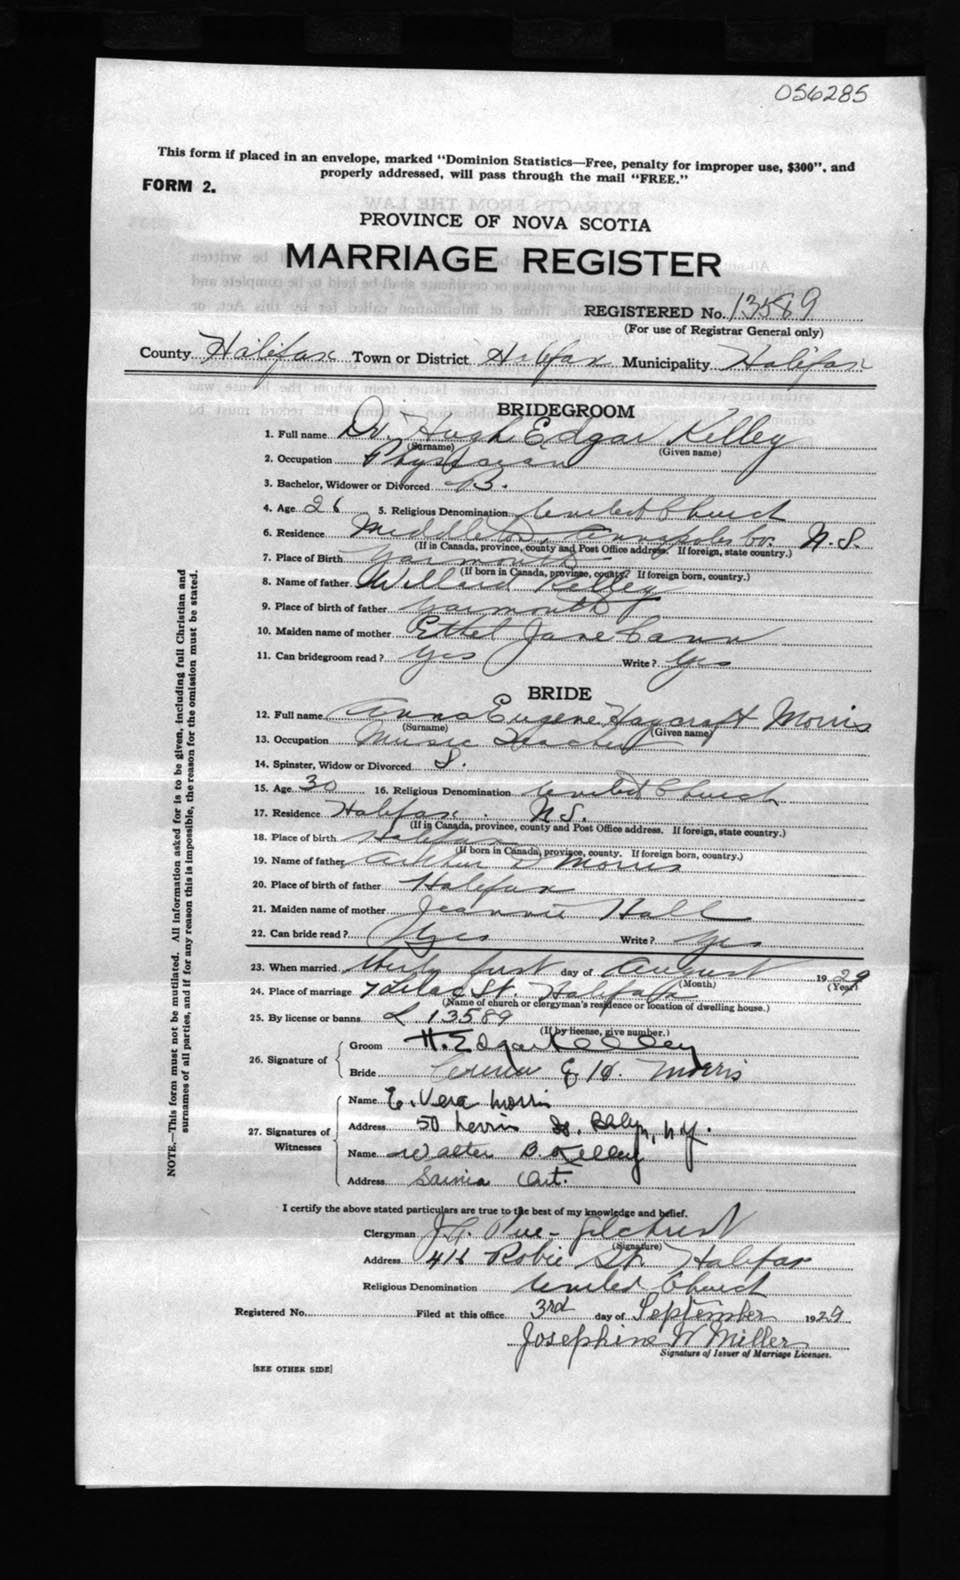 056285
This form if placed in an envelope, marked "Dominion Statistics—Free, penalty for improper use, $300", and
properly addressed, will pass through the mail "FREE."
FORM 2.
PROVINCE OF NOVA SCOTIA
MARRIAGE REGISTER
REGISTERED No. 13589
(For use of Registrar General only)
County Halifax Town or District Halifax Municipality Halifax
BRIDEGROOM
1. Full name Dr. Hugh Edgar Kelley
(Surname) (Given name)
2. Occupation Physician
3. Bachelor, Widower or Divorced B.
4. Age 26 5. Religious Denomination United Church
6. Residence Middleton, Annapolis Co. N.S.
(If in Canada, province, county and Post Office address. If foreign, state country.)
7. Place of Birth Yarmouth
(If born in Canada, province, county? If foreign born, country.)
8. Name of father Willard Kelley
9. Place of birth of father Yarmouth
10. Maiden name of mother Ethel Jane Cann
11. Can bridegroom read? Yes Write? Yes
BRIDE
12. Full name Anna Eugene Haycraft Morris
(Surname) (Given name)
13. Occupation Music Teacher
14. Spinster, Widow or Divorced S.
15. Age 30 16. Religious Denomination United Church
17. Residence Halifax. N.S.
(If in Canada, province, county and Post Office address. If foreign, state country.)
18. Place of birth Halifax
(If born in Canada, province, county. If foreign born, country.)
19. Name of father Arthur D Morris
20. Place of birth of father Halifax
21. Maiden name of mother Jeannie Hall
22. Can bride read? Yes Write? Yes
23. When married thirty first day of August 1929
(Month) (Year)
24. Place of marriage 7 Lilac St. Halifax
(Name of church or clergyman's residence or location of dwelling house.)
25. By license or banns L 13589
(If by license, give number.)
26. Signature of
Groom H. Edgar Kelley
Bride E. H. Morris
27. Signatures of Witnesses
Name E. Vera Morris
Address 50 St. Bklyn, N.Y.
Name Walter B. Kelley
Address Sarnia Ont.
I certify the above stated particulars are true to the best of my knowledge and belief.
Clergyman J.G. Pue-Gilchrist
(Signature)
Address 416 Robie St. Halifax
Religious Denomination United Church
Registered No. Filed at this office 3rd day of September 1929
Josephine W Miller
Signature of Issuer of Marriage Licenses.
[SEE OTHER SIDE]
NOTE.—This form must not be mutilated. All information asked for is to be given, including full Christian and
surnames of all parties, and if for any reason this is impossible, the reason for the omission must be stated.